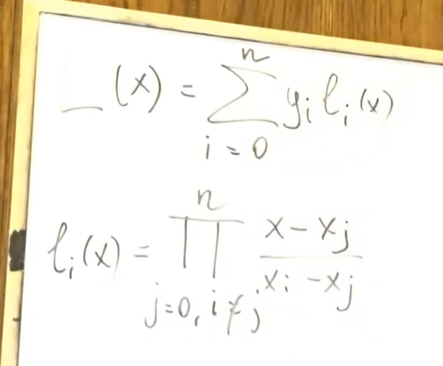 L(x) = \sum_{i=0}^{n} y_i l_i(x)
l_i(x) = \prod_{j=0, i \neq j}^{n} \frac{x - x_j}{x_i - x_j}